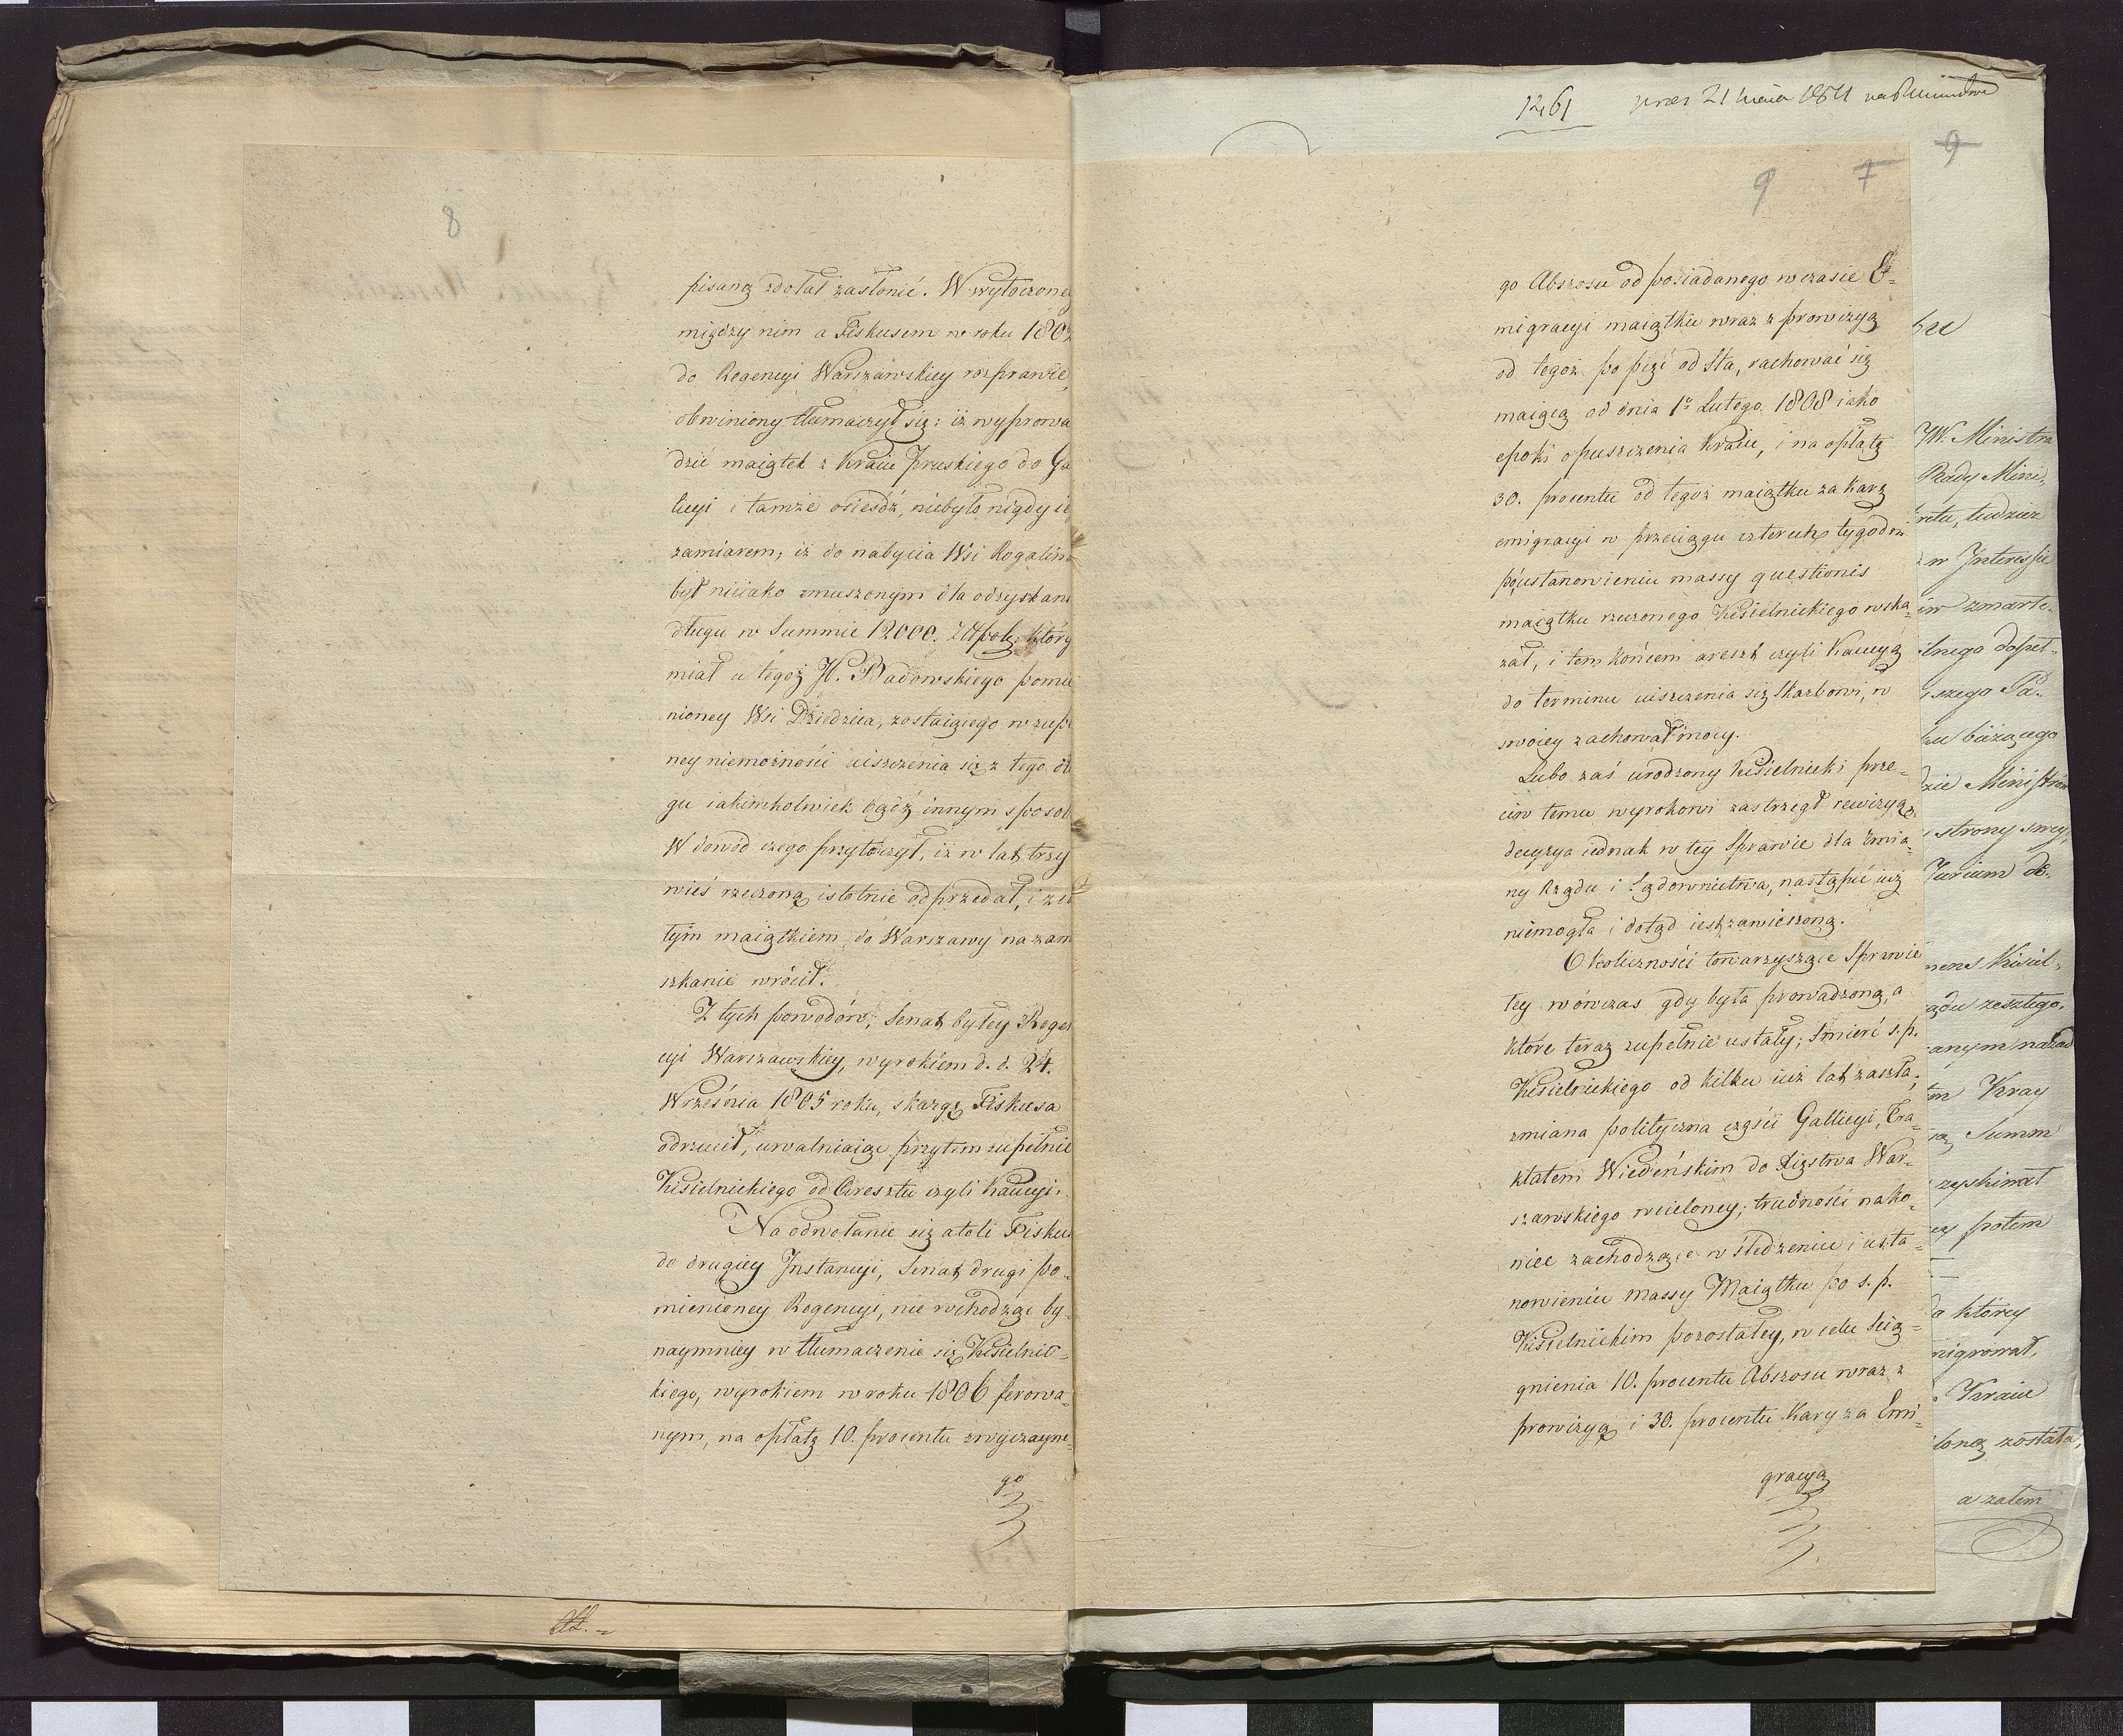 8
pisaną zdołał zasłonić. W wytoczoney
między nim a Fiskusem w roku 180
do Regencyi Warszawskiey rozprawie,
obwiniony tłumaczył się: iż wyprowa
dzić maiątek z Kraiu Pruskiego do Ga
licyi i tamże osieść, niebyło nigdy ie
zamiarem; iż do nabycia Wsi Rogalin
był nieiako zmuszonym dla odzyskani
długu w Summie 12000. Złłpol: który
miał u tegoż H. Badowskiego pomie
nioney Wsi Dziedzica, zostaiącego w zupeł
ney niemożności uiszczenia się z tego dłu
gu iakimkolwiek bądź innym sposob
W dowód czego przytoczył, iż w lat trzy
wieś rzeczoną istotnie odprzedał, i z
tym maiątkiem do Warszawy na zam
szkanie wrócił.
Z tych powodów, Senat byłey Regen
cyi Warszawskiey, wyrokiem d. d. 24.
Września 1805 roku, skargę Fiskusa
odrzucił, uwalniaiąc przytem zupełnie
Kisielnickiego od Aresztu czyli Kaucyi.
Na odwołanie się atoli Fiskus
do drugiey Instancyi, Senat drugi po-
mienioney Regencyi, nie wchodząc by-
naymniey w tłumaczenie się Kisielnic=
kiego, wyrokiem w roku 1806 ferowa-
nym, na opłatę 10. procentu zwyczayne-
go
1261 21 1811
9 7 9
go Abszosu od posiadanego w czasie E=
migracyi maiątku wraz z prowizyą
od tegoż po pięć od Sta, rachować się
maiącą od dnia 1o Lutego 1808 iako
epoki opuszczenia Kraiu, i na opłatę
30. procentu od tegoż maiątku za karę
emigracyi w przeciągu czterech tygodni
po ustanowieniu massy questionis
maiątku rzeczonego Kisielnickiego wska=
zał, i tem końcem areszt czyli Kaucyą
do terminu uiszczenia się Skarbowi, w
swoiey zachował mocy.
Lubo zaś urodzony Kisielnicki prze=
ciw temu wyrokowi zastrzegł rewizyą,
decyzya iednak w tey Sprawie dla zmia=
ny Rządu i Sądownictwa, nastąpić iuż
niemogła i dotąd iest zawieszoną.
Okoliczności towarzyszące Sprawie
tey wówczas gdy była prowadzoną, a
które teraz zupełnie ustały; śmierć s. p.
Kisielnickiego od kilku iuż lat zaszła;
zmiana polityczna części Gallicyi, Tra=
ktatem Wiedeńskim do Xięstwa War=
szawskiego wcieloney; trudności nako=
niec zachodzące w śledzeniu i usta=
nowieniu massy Maiątku po s. p.
Kisielnickim pozostałey, w celu ścią=
gnienia 10. procentu Abszosu wraz z
prowizyą i 30. procentu Kary za Emi=
gracyą
JW. Ministra
Rady Mini-
tudzież
w Interessie
zmarłe-
dopeł-
szego Pa-
bieżącego
Ministrów
strony swey,
Jurium de-
Kisiel-
zeszłego,
Kray
Summ
potem
którey
migrował,
Kraiu
została,
a zatem